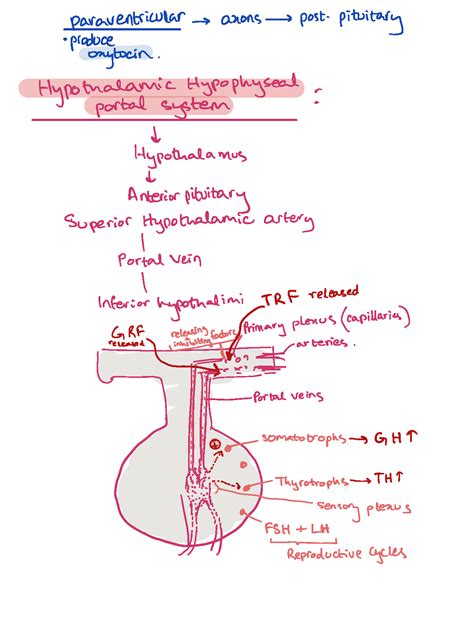 paraventricular → axons → post. pituitary
• produce
oxytocin.
Hypothalamic Hypophyseal
portal system :
Hypothalamus
Anterior pituitary
Superior Hypothalamic artery
Portal vein
Inferior hypothalimi
TRF released
GRF
released
releasing +
inhibiting factors
Primary plexus (capillaries)
arteries.
Portal veins
+
somatotrophs → GH ↑
Thyrotrophs → TH ↑
sensory plexus
FSH + LH
Reproductive cycles